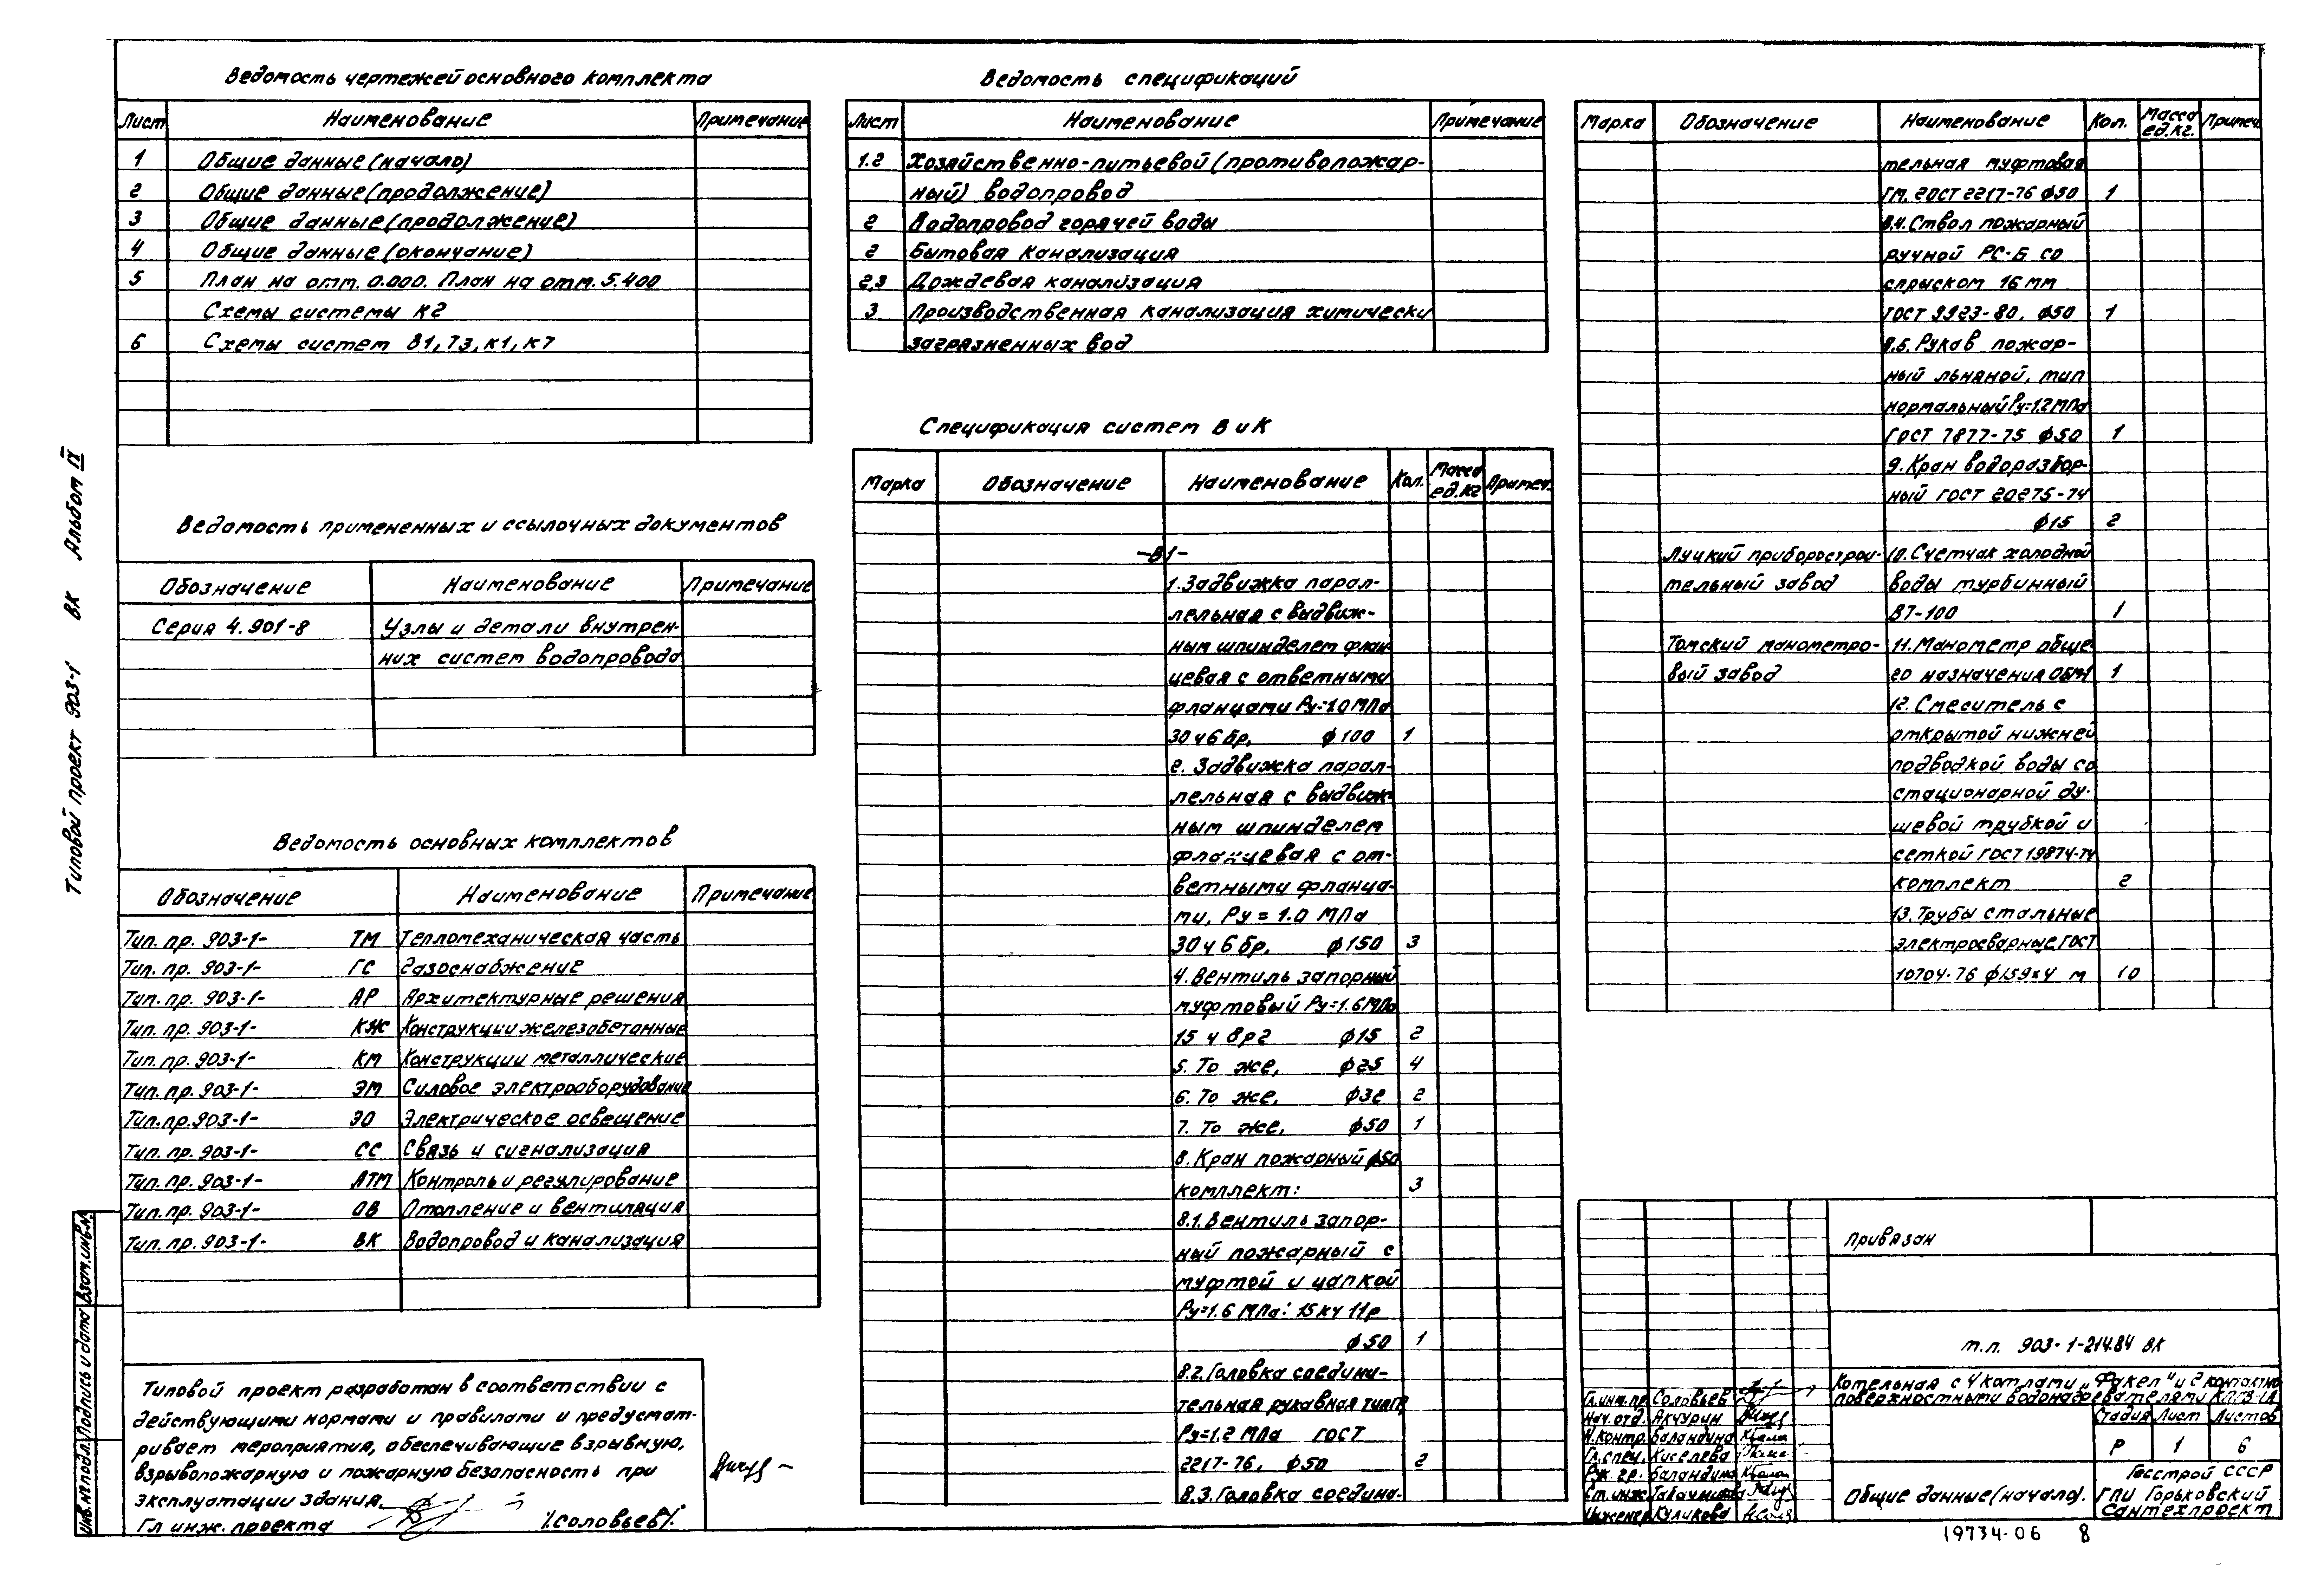 Типовой проект 903-1 ВК Альбом IX
Ведомость чертежей основного комплекта
Лист Наименование Примечание
1 Общие данные (начало)
2 Общие данные (продолжение)
3 Общие данные (продолжение)
4 Общие данные (окончание)
5 План на отм. 0.000. План на отм. 5.400
Схемы системы К2
6 Схемы систем В1, Т3, К1, К7
Ведомость примененных и ссылочных документов
Обозначение Наименование Примечание
Серия 4.901-8 Узлы и детали внутрен-
них систем водопровода
Ведомость основных комплектов
Обозначение Наименование Примечание
Тип. пр. 903-1- ТМ Тепломеханическая часть
Тип. пр. 903-1- ГС Газоснабжение
Тип. пр. 903-1- АР Архитектурные решения
Тип. пр. 903-1- КЖ Конструкции железобетонные
Тип. пр. 903-1- КМ Конструкции металлические
Тип. пр. 903-1- ЭМ Силовое электрооборудование
Тип. пр. 903-1- ЭО Электрическое освещение
Тип. пр. 903-1- СС Связь и сигнализация
Тип. пр. 903-1- АТМ Контроль и регулирование
Тип. пр. 903-1- ОВ Отопление и вентиляция
Тип. пр. 903-1- ВК Водопровод и канализация
Типовой проект разработан в соответствии с
действующими нормами и правилами и предусмат-
ривает мероприятия, обеспечивающие взрывную,
взрывопожарную и пожарную безопасность при
эксплуатации здания.
Гл инж. проекта /Соловьев/.
Инв. № подл. Подпись и дата Взам. инв. №
Ведомость спецификаций
Лист Наименование Примечание
1.2 Хозяйственно-питьевой (противопожар-
ный) водопровод
2 Водопровод горячей воды
2 Бытовая канализация
2,3 Дождевая канализация
3 Производственная канализация химически
загрязненных вод
Спецификация систем В и К
Марка Обозначение Наименование Кол. Масса ед. кг Примеч.
-В1-
1. Задвижка парал-
лельная с выдвиж-
ным шпинделем флан-
цевая с ответными
фланцами Ру=1.0 МПа
30ч6бр, ф100 1
2. Задвижка парал-
лельная с выдвиж-
ным шпинделем
фланцевая с от-
ветными фланца-
ми, Ру = 1.0 МПа
30ч6бр, ф150 3
4. Вентиль запорный
муфтовый Ру=1.6 МПа
15ч8р2 ф15 2
5. То же, ф25 4
6. То же, ф32 2
7. То же, ф50 1
8. Кран пожарный ф50
комплект: 3
8.1. Вентиль запор-
ный пожарный с
муфтой и цапкой
Ру=1.6 МПа: 15кч11р
ф50 1
8.2. Головка соедини-
тельная рукавная типГР
Ру=1.2 МПа ГОСТ
2217-76, ф50 2
8.3. Головка соедини-
Марка Обозначение Наименование Кол. Масса ед. кг. Примеч.
тельная муфтовая
ГМ. ГОСТ 2217-76 ф50 1
8.4. Ствол пожарный
ручной РС-Б со
спрыском 16 мм
ГОСТ 9923-80, ф50 1
8.5. Рукав пожар-
ный льняной, тип
нормальный Ру=1.2МПа
ГОСТ 7877-75 ф50 1
9. Кран водоразбор-
ный ГОСТ 20275-74
ф15 2
Луцкий приборострои- 10. Счетчик холодной
тельный завод воды турбинный
ВТ-100 1
Томский манометро- 11. Манометр обще-
вый завод го назначения ОБМ1 1
12. Смеситель с
открытой нижней
подводкой воды со
стационарной ду-
шевой трубкой и
сеткой ГОСТ 19874-74
комплект 2
13. Трубы стальные
электросварные ГОСТ
10704-76 ф159х4 м 10
Привязан
т.п. 903-1-214.84 ВК
Котельная с 4 котлами „Факел" и 2 контактно
поверхностными водонагревателями
Гл.инж.пр. Соловьев
Нач. отд. Акчурин
Н.контр. Баландина
Гл.спец. Киселева
Рук. гр. Баландина
Ст.инж.
Инженер Куликова
Стадия Лист Листов
Р 1 6
Общие данные (начало).
Госстрой СССР
ГПИ Горьковский
Сантехпроект
19734-06 8